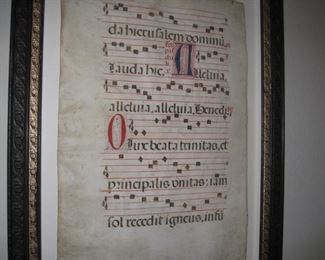 da hierusalem dominū,
lauda hic. Alleluia,
alleluia, alleluia, Benedi
O lux beata trinitas, et
principalis vnitas: iam
sol recedit igneus, infū